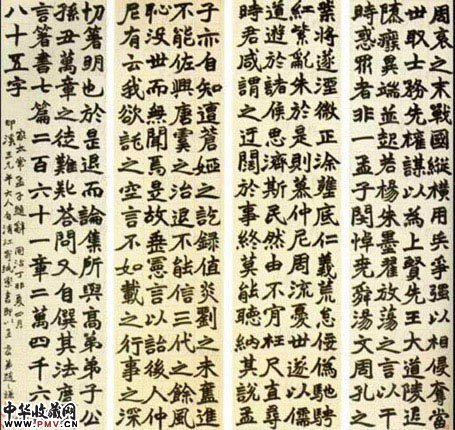 周衰之末戰國縱橫用兵爭强以相侵奪當
世取士務先權謀以為上賢先王大道陵遲
隳癈異端並起若楊朱墨翟放蕩之言以干
時惑眾者非一孟子閔悼堯舜湯文周孔之
業將遂湮微正塗壅底仁義荒怠佞偽馳騁
紅紫亂朱於是則慕仲尼周流憂世遂以儒
道遊於諸侯思濟斯民然由不肯枉尺直尋
時君咸謂之迂闊於事終莫能聽納其說孟
子亦自知遭蒼姬之訖録值炎劉之未奮進
不能佐興唐虞之治退不能信三代之餘風
恥沒世而無聞焉是故垂憲言以詒後人仲
尼有云我欲託之空言不如載之行事之深
切箸明也於是退而論集所與高弟弟子公
孫丑萬章之徒難疑答問又自撰其法度
言箸書七篇二百六十一章二萬四千六
八十五字
家太常孟子題辭 同治丁卯夏四月
印溪三兄年大人自清江寄紙索書即以正 弟趙之謙
中华收藏网
WWW.PMV.CN